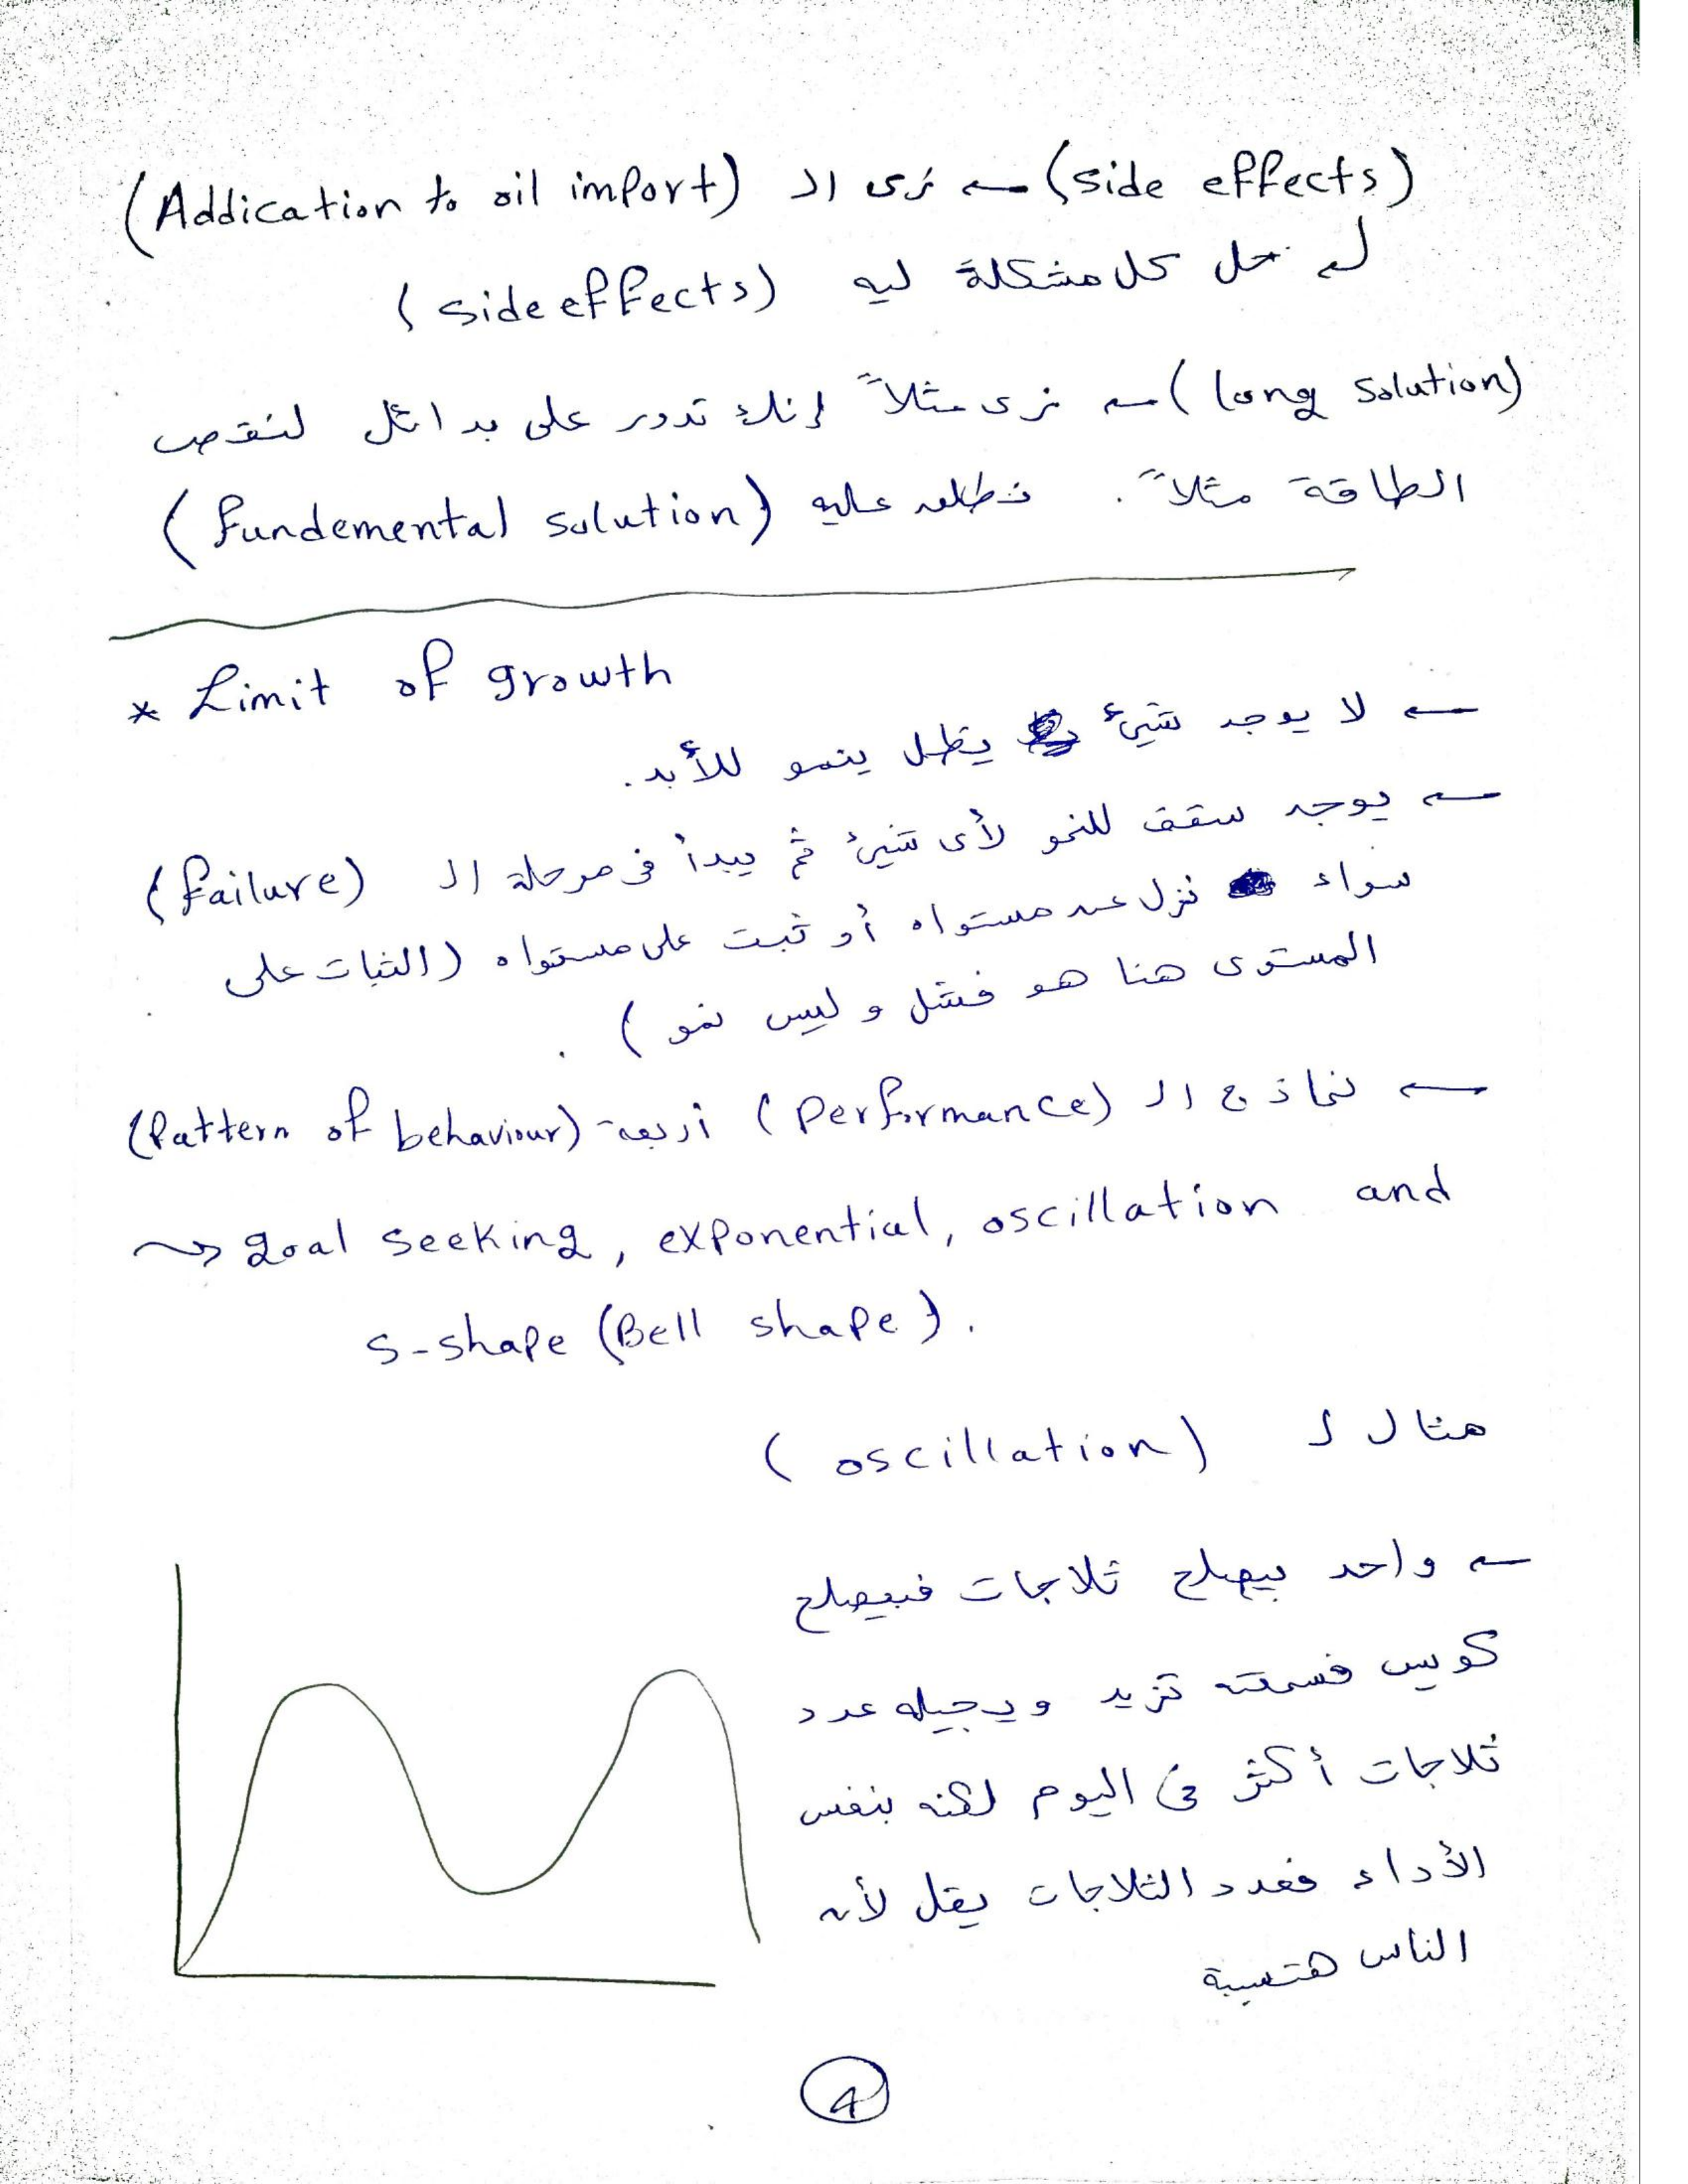 (side effects) ← زى الـ (Addication to oil import)
حل كل مشكلة ليه (side effects)
(long solution) ← زى مثلاً إنك تدور على بدائل لنقص
الطاقة مثلاً. نطلق عليه (fundemental solution)
* Limit of growth
← لا يوجد شيئ يظل ينمو للأبد.
← يوجد سقف للنمو لأى شيئ ثم يبدأ فى مرحلة الـ (failure)
سواء نزل عن مستواه أو ثبت على مستواه (الثبات على
المستوى هنا هو فشل و ليس نمو).
← نماذج الـ (performance) أربعة (Pattern of behaviour)
↝ goal seeking, exponential, oscillation and
S-shape (Bell shape).
مثال لـ (oscillation)
← واحد بيصلح ثلاجات فبيصلح
كويس فسمعته تزيد ويجيله عدد
ثلاجات أكثر فى اليوم لكنه بنفس
الأداء فعدد الثلاجات يقل لأن
الناس هتسيبة
4